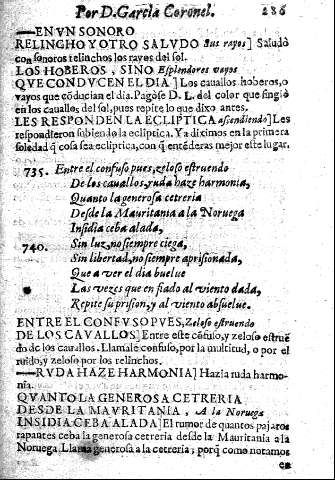 Por D. Garcia Coronel. 286
—EN VN SONORO
RELINCHO Y OTRO SALVDO Sus rayos] Saludò
con sonoros relinchos los rayos del sol.
LOS HOBEROS, SINO Esplendores vayos
QVE CONDVCEN EL DIA] Los cauallos hoberos, o
vayos que cõducian el dia. Pagòse D. L. del color que fingiò
en los cauallos del sol, pues repite lo que dixo antes.
LES RESPONDEN LA ECLIPTICA ascendiendo] Les
respondieron subiendo la ecliptica. Ya diximos en la primera
soledad q̃ cosa sea ecliptica, con q̃ entẽderas mejor este lugar.
735. Entre el confuso pues, zeloso estruendo
De los cauallos, ruda haze harmonia,
Quanto la generosa cetreria
Desde la Mauritania a la Noruega
Insidia ceba alada,
740. Sin luz, no siempre ciega,
Sin libertad, no siempre aprisionada,
Que a ver el dia buelue
Las vezes que en fiado al viento dada,
Repite su prision, y al viento absuelue.
ENTRE EL CONFVSO PVES, Zeloso estruendo
DE LOS CAVALLOS] Entre este cõfuso, y zeloso estruẽ
do de los cauallos. Llamale confuso, por la multitud, o por el
ruido, y zeloso por los relinchos.
—RVDA HAZE HARMONIA] Hazia ruda harmo-
nia.
QVANTO LA GENEROSA CETRERIA
DESDE LA MAVRITANIA, A la Noruega
INSIDIA CEBA ALADA] El rumor de quantos pajaros
rapantes ceba la generosa cetreria desde la Mauritania a la
Noruega. Llama generosa a la cetreria; porq̃ como notamos
en